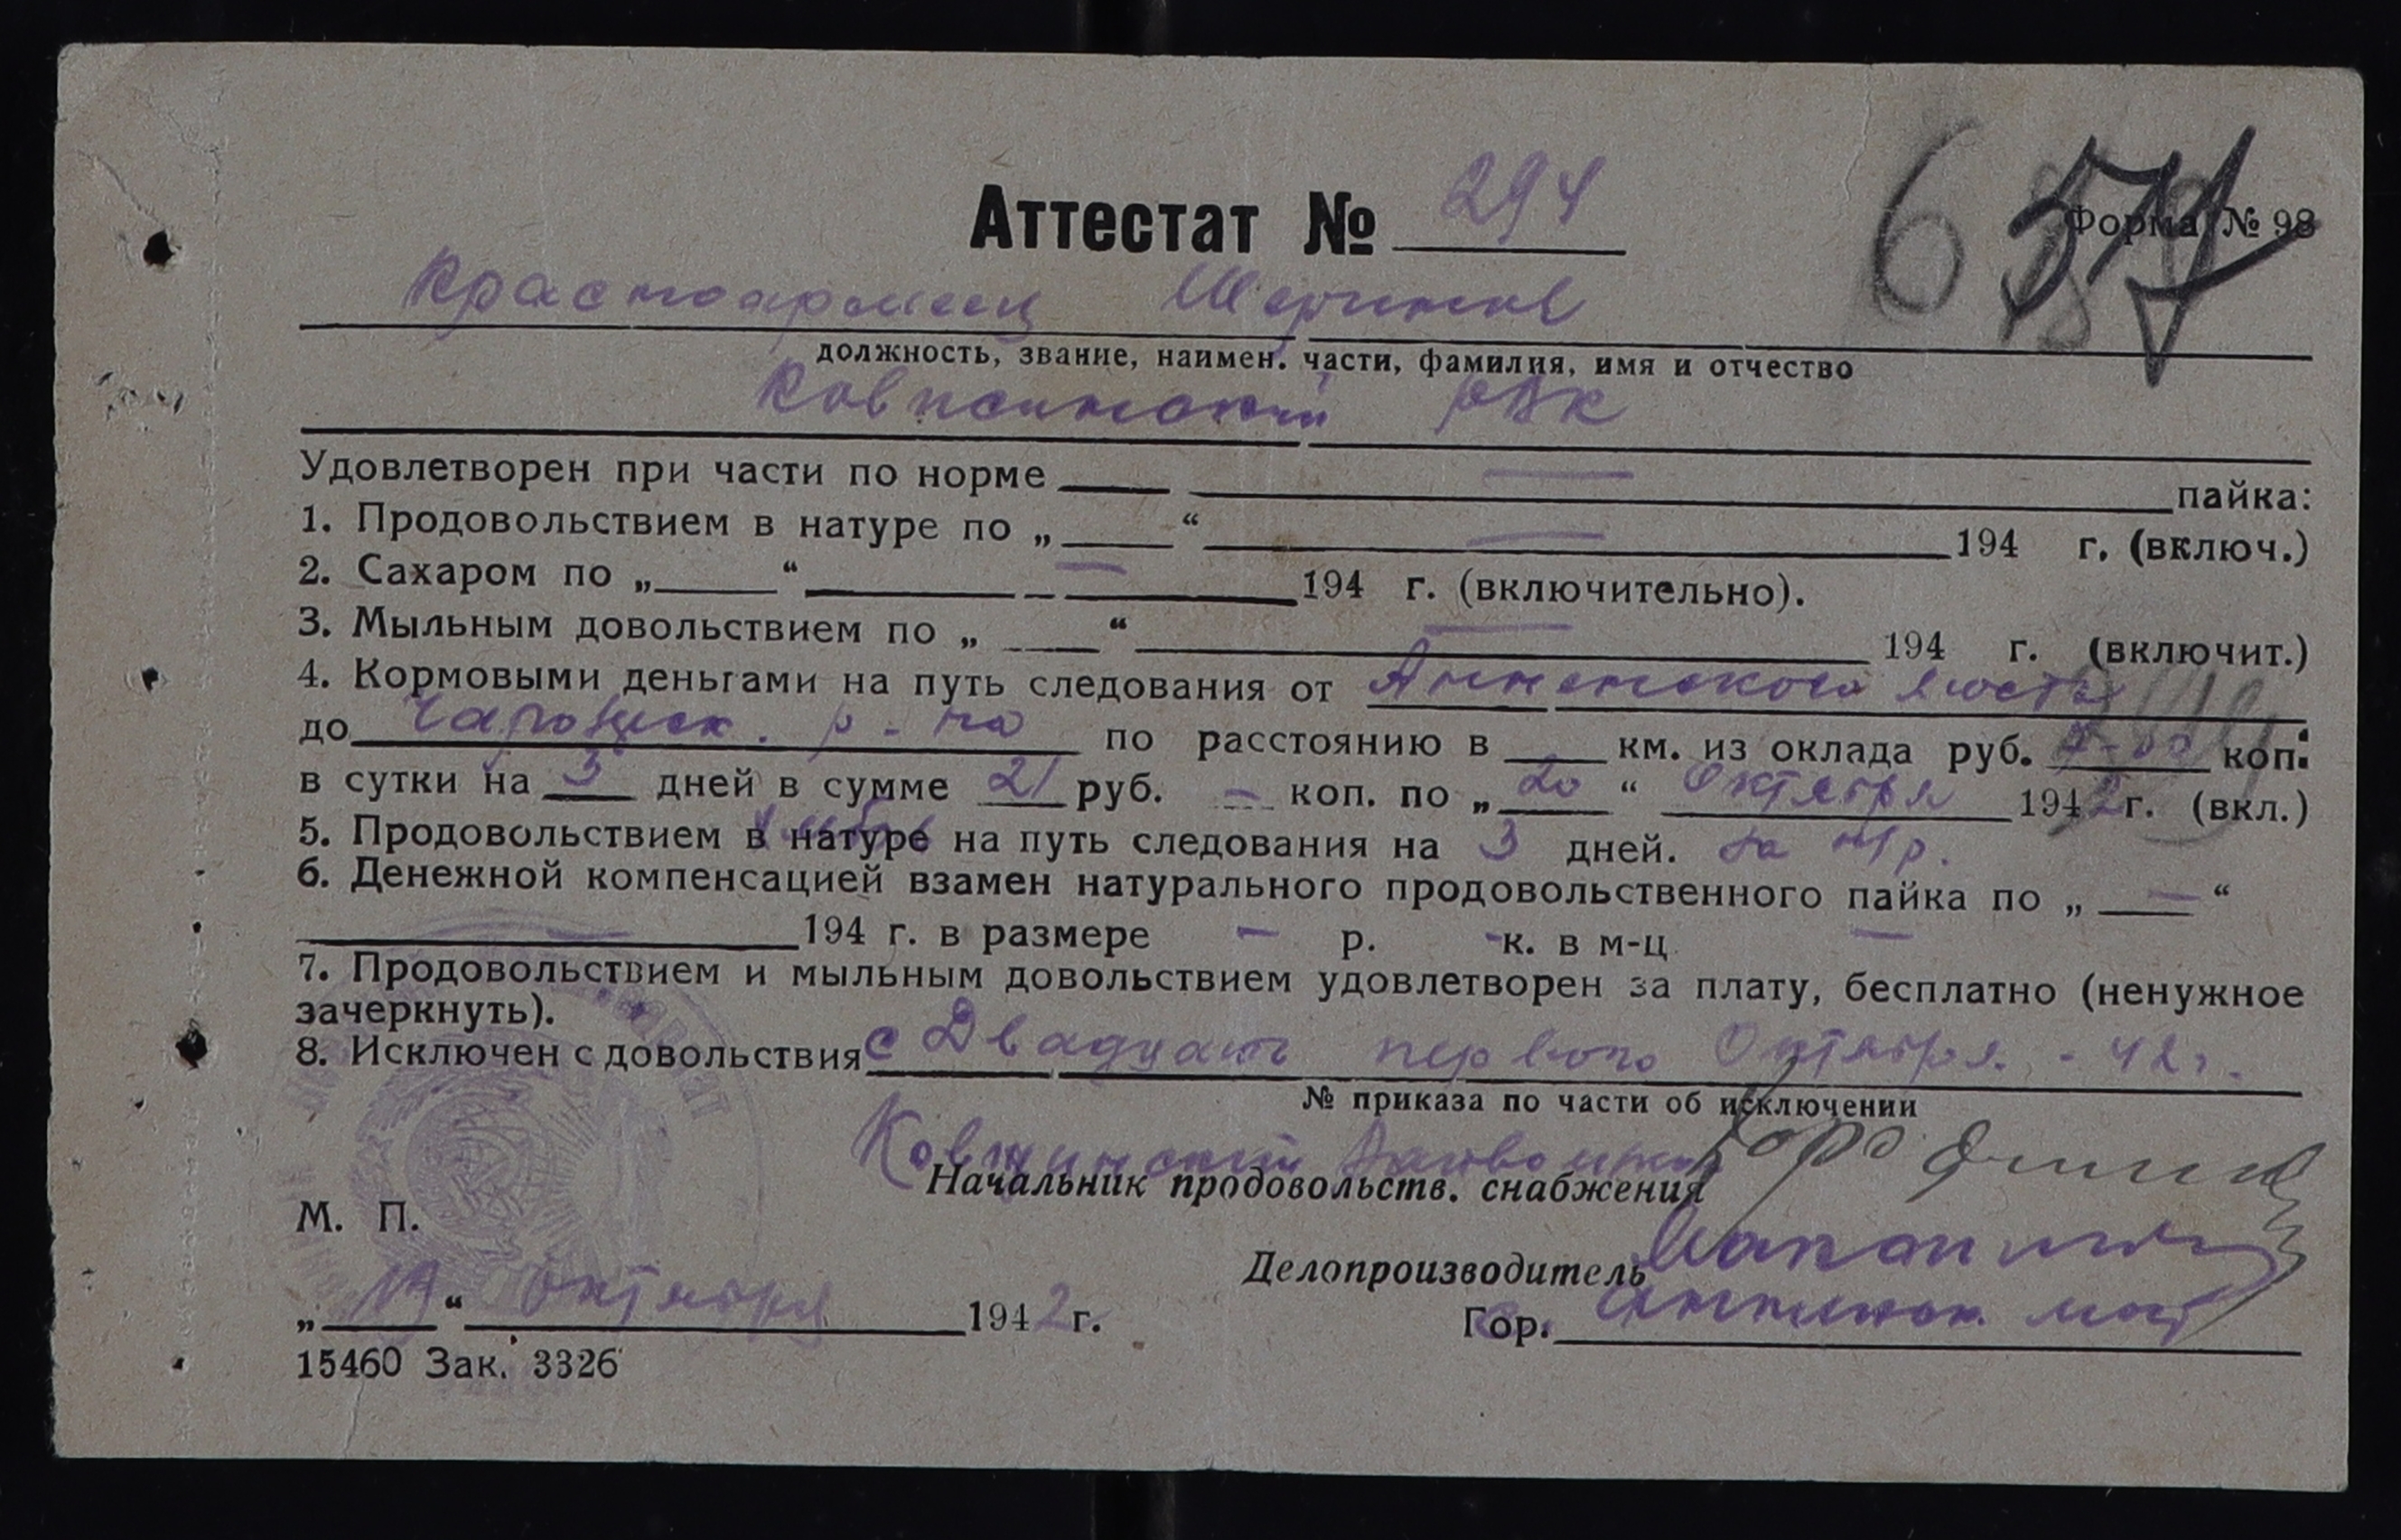 Аттестат № 294
Форма № 98
Красноармеец
должность, звание, наимен. части, фамилия, имя и отчество
РВК
Удовлетворен при части по норме — пайка:
1. Продовольствием в натуре по „ “ — 194 г. (включ.)
2. Сахаром по „ “ — 194 г. (включительно).
3. Мыльным довольствием по „ “ — 194 г. (включит.)
4. Кормовыми деньгами на путь следования от Анненского моста
до р-на по расстоянию в км. из оклада руб. 7-00 коп.
в сутки на 3 дней в сумме 21 руб. — коп. по „ 20 “ Октября 1942 г. (вкл.)
5. Продовольствием в натуре на путь следования на 3 дней.
6. Денежной компенсацией взамен натурального продовольственного пайка по „ — “
194 г. в размере — р. - к. в м-ц —
7. Продовольствием и мыльным довольствием удовлетворен за плату, бесплатно (ненужное
зачеркнуть).
8. Исключен с довольствия с Двадцать первого Октября - 42 г.
№ приказа по части об исключении
Ковжинский
Начальник продовольств. снабжения
М. П.
Делопроизводитель
„ 19 “ Октября 1942 г.
Гор. мост
15460 Зак. 3326